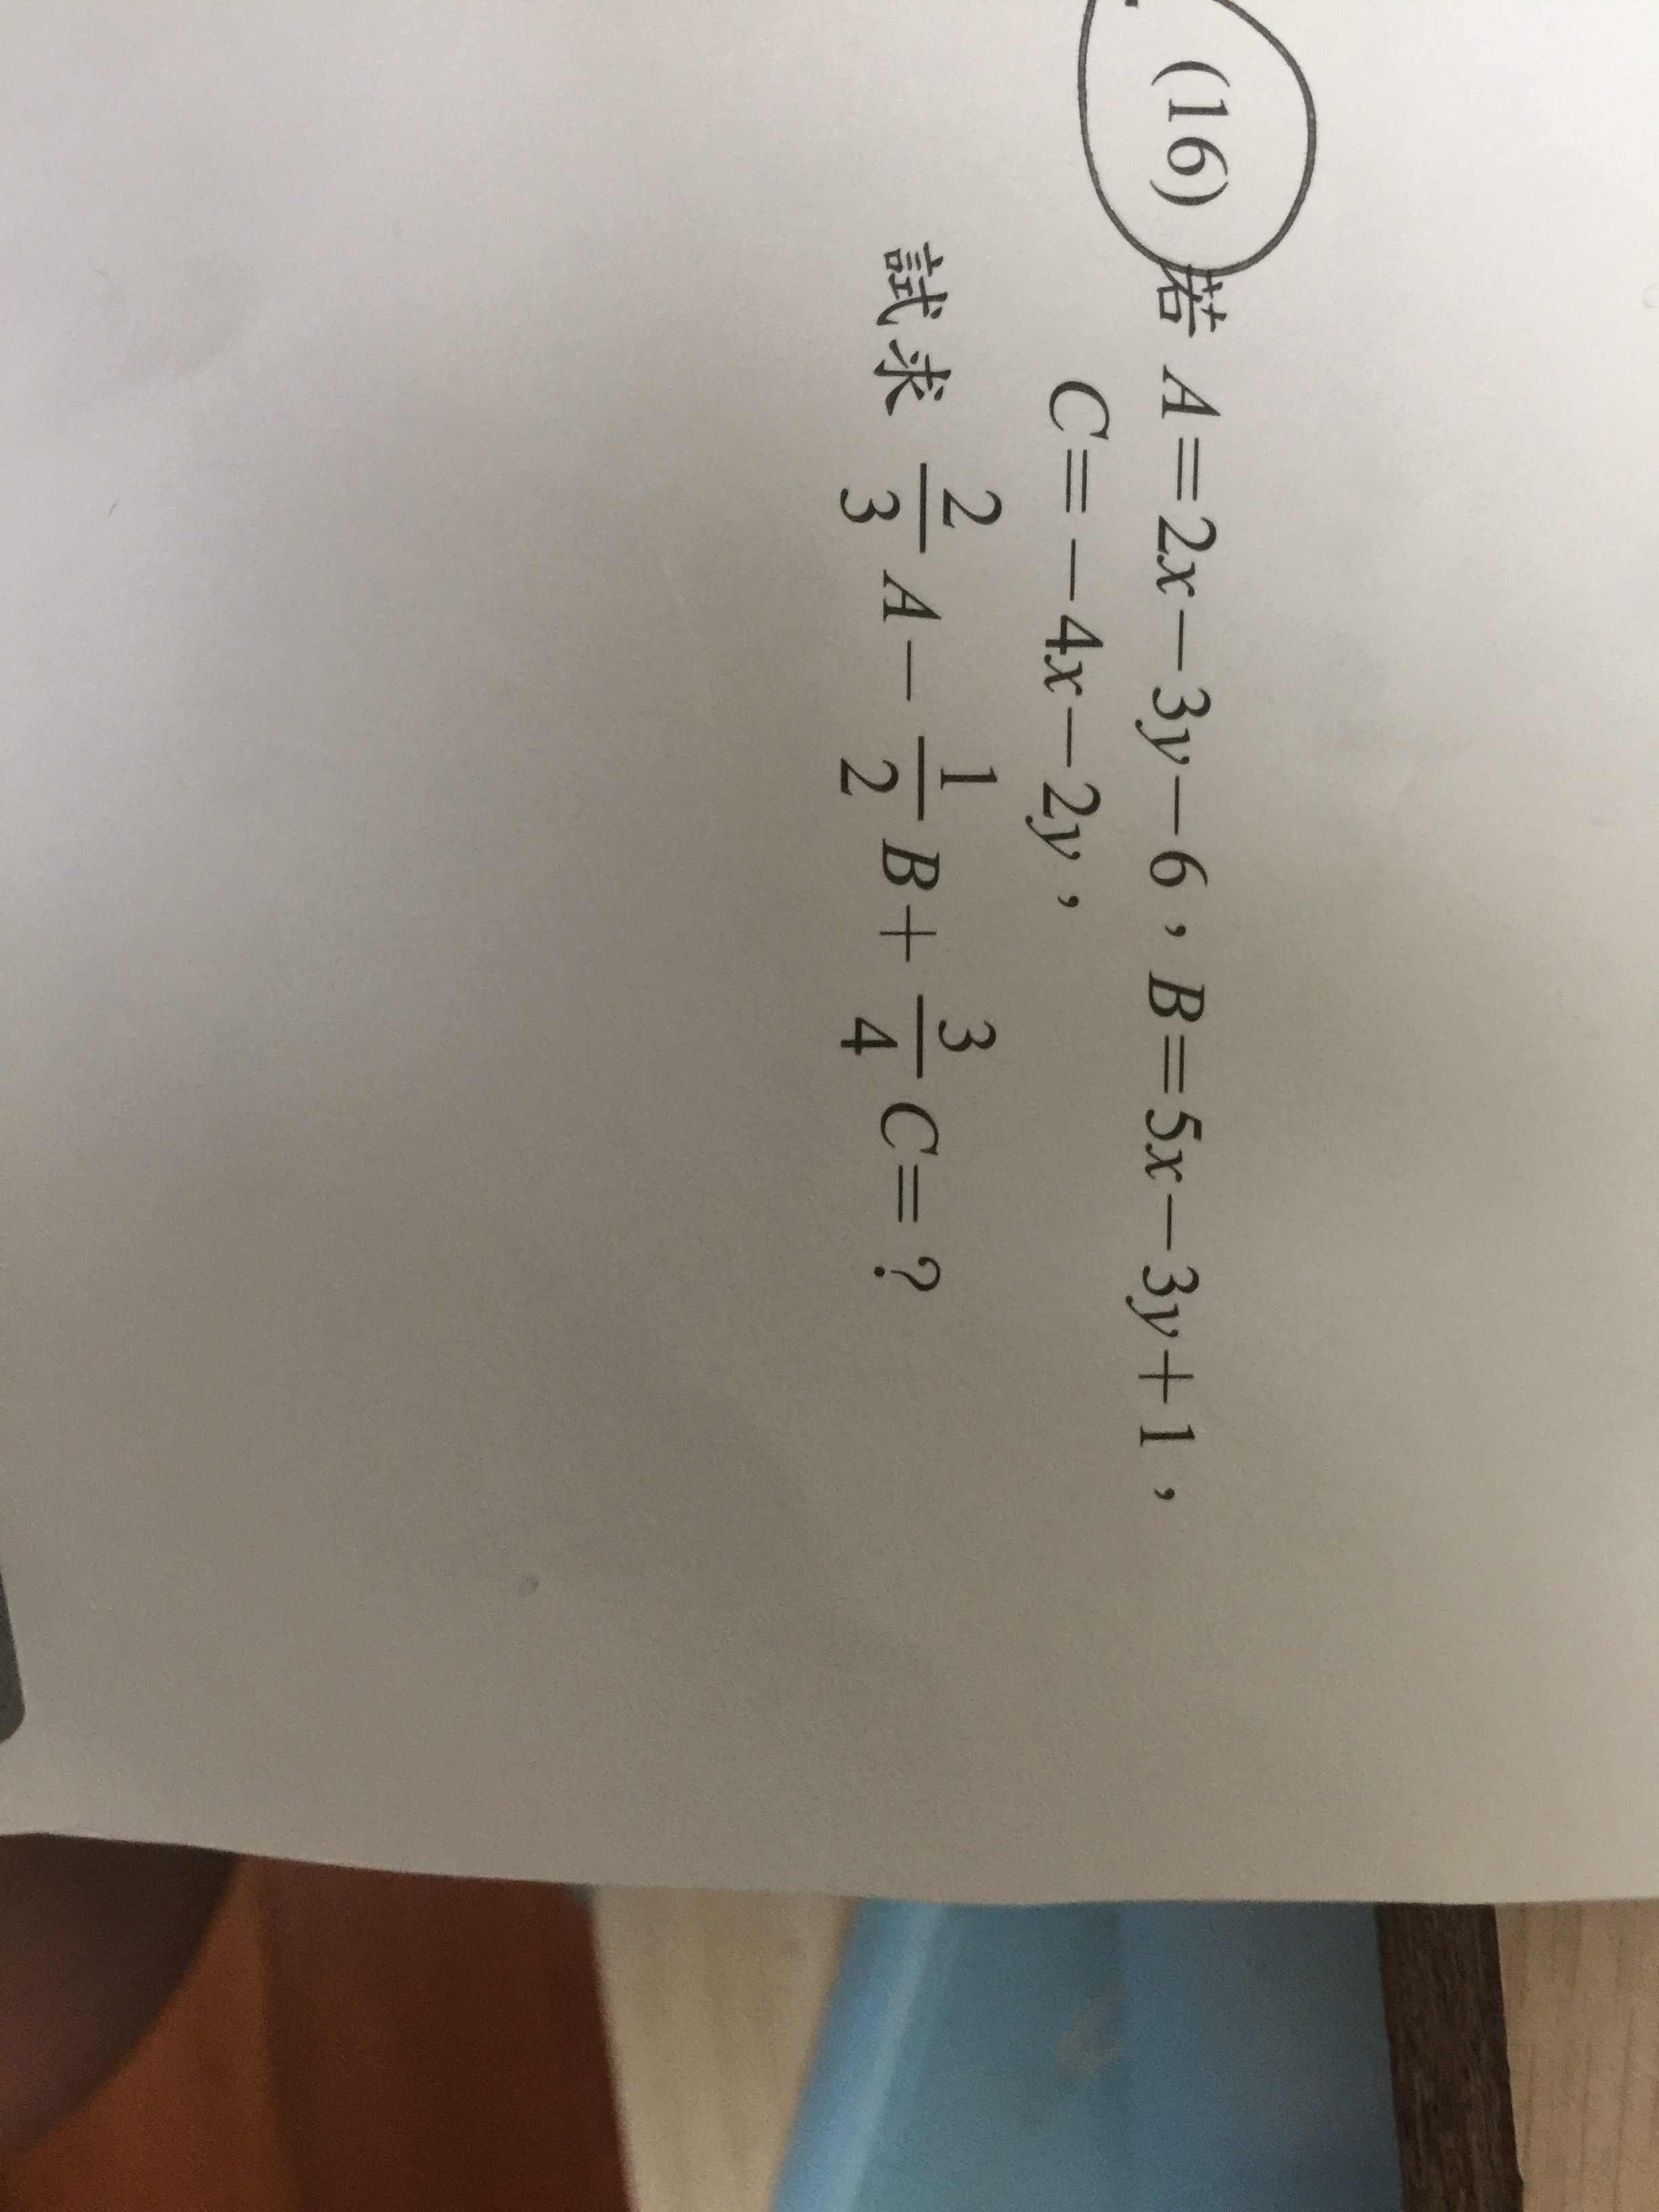 (16) 若 A=2x-3y-6，B=5x-3y+1，
C=-4x-2y，
試求 2/3 A- 1/2 B+ 3/4 C=?